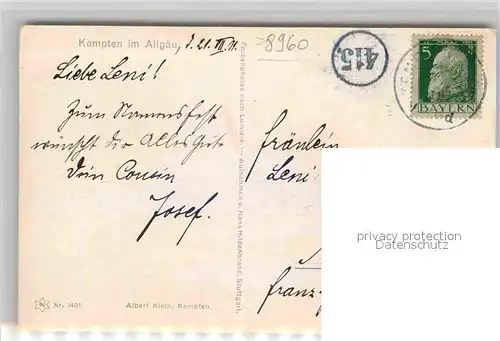 Kempten im Allgäu, d. 21. III. 11.
8960
415.
5
BAYERN
Liebe Leni!
Zum Namensfest
wünscht dir Alles Gute
Dein Cousin
Josef.
Fräulein
Leni
Franz-
Farbenphotos nach Lumière. — Aufnahmen v. Hans Hildenbrand, Stuttgart.
privacy protection
Datenschutz
Nr. 1401.
Albert Klein, Kempten.